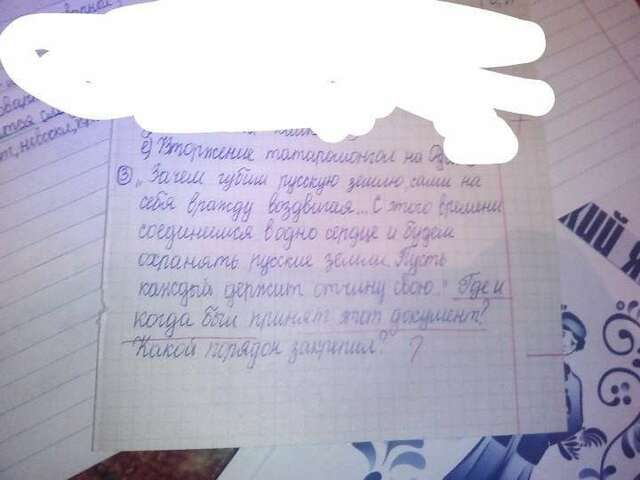 е) Вторжение татаромонгол на
③ „Зачем губим русскую землю сами на
себя вражду воздвигая... С этого времени
соединимся в одно сердце и будем
охранять русские земли. Пусть
каждый держит отчину свою." Где и
когда был принят этот документ?
Какой порядок закрепил? ?
ХИЙ Я